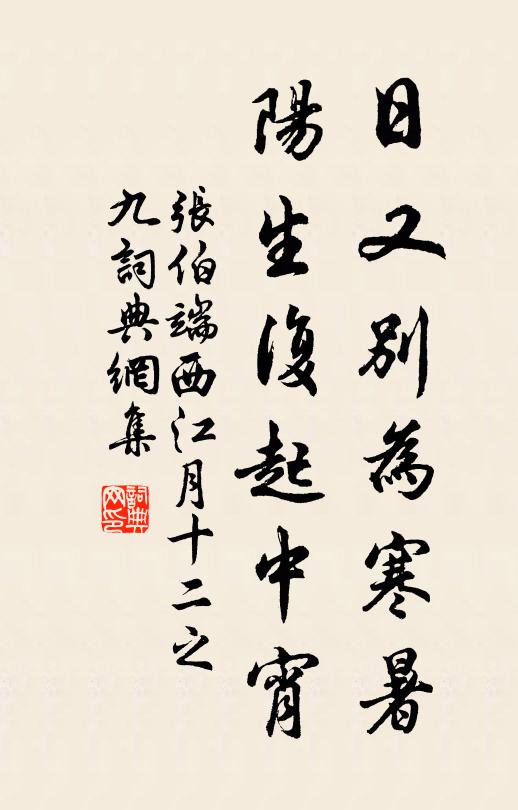 日又別為寒暑
陽生復起中宵
張伯端西江月十二之
九詞典網集
詞典
网印